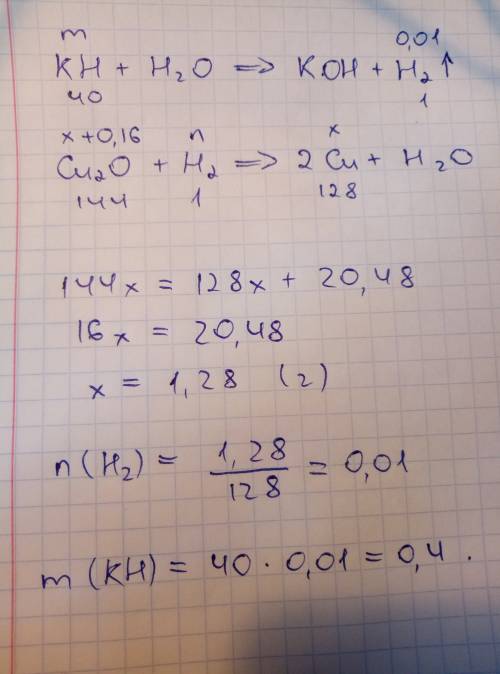 m 0,01
KH + H₂O => KOH + H₂↑
40 1
x+0,16 n x
Cu₂O + H₂ => 2 Cu + H₂O
144 1 128
144x = 128x + 20,48
16x = 20,48
x = 1,28 (г)
n(H₂) = 1,28/128 = 0,01
m (KH) = 40 · 0,01 = 0,4 .